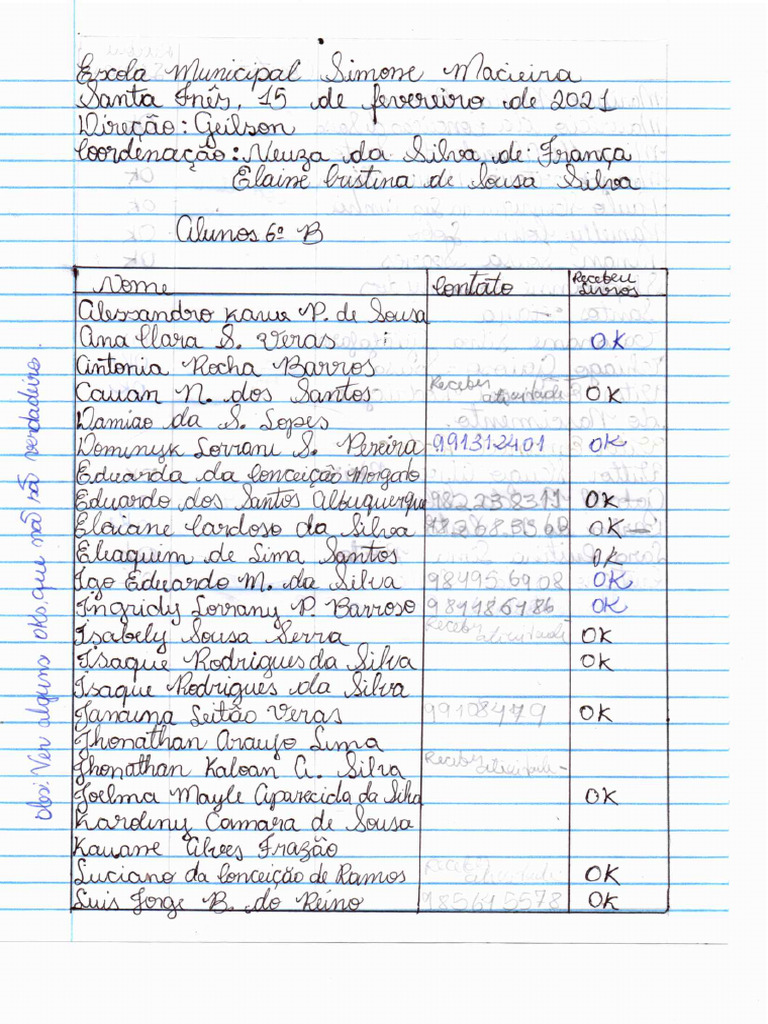 Escola Municipal Simone Macieira
Santa Inês, 15 de fevereiro de 2021
Direção: Geilson
Coordenação: Neuza da Silva de França
Elaine Cristina de Sousa Silva
Alunos 6º B
Nome Contato Recebeu Livros
Alessandro Kaue P. de Sousa
Ana Clara S. Veras OK
Antonia Rocha Barros
Cauan N. dos Santos Receber atividade OK
Damiao da S. Lopes
Dominyk Lorrani S. Pereira 991312401 OK
Eduarda da Conceição Morgato
Eduardo dos Santos Albuquerque 982238311 OK
Elaiane Cardoso da Silva OK
Eliaquim de Lima Santos OK
Igo Eduardo M. da Silva 984956908 OK
Ingridy Lorrany P. Barroso OK
Isabely Sousa Serra Receber atividade OK
Isaque Rodrigues da Silva OK
Isaque Rodrigues da Silva
Janaina Leitão Veras 99108479 OK
Jhonathan Araujo Lima
Jhonathan Kaloan A. Silva Receber
Joelma Mayle Aparecida da Silva OK
Karoliny Camara de Sousa
Kauane Alves Frazão
Luciano da Conceição de Ramos Receber atividade OK
Luis Jorge B. do Reino 985615578 OK
Obs: Ver alguns oks, que não são verdadeiro.